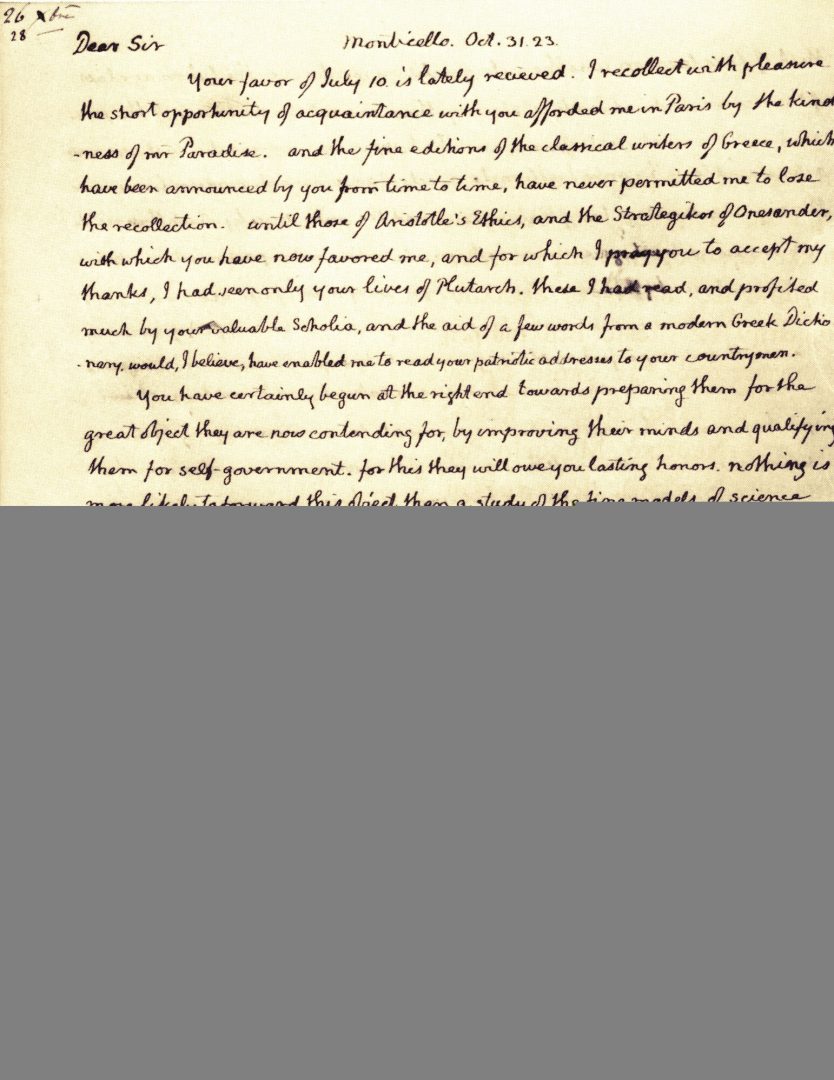 26 xbre
28
Dear Sir Monticello. Oct. 31. 23.
Your favor of July 10. is lately recieved. I recollect with pleasure
the short opportunity of acquaintance with you afforded me in Paris by the kind
-ness of mr Paradise. and the fine editions of the classical writers of Greece, which
have been announced by you from time to time, have never permitted me to lose
the recollection. until those of Aristotle's Ethics, and the Strategikos of Onesander,
with which you have now favored me, and for which I pray you to accept my
thanks, I had seen only your lives of Plutarch. these I had read, and profited
much by your valuable Scholia, and the aid of a few words from a modern Greek Dictio
-nary. would, I believe, have enabled me to read your patriotic addresses to your countrymen.
You have certainly begun at the right end towards preparing them for the
great object they are now contending for, by improving their minds and qualifying
them for self-government. for this they will owe you lasting honors. nothing is
more likely to forward this object than a study of the fine models of science